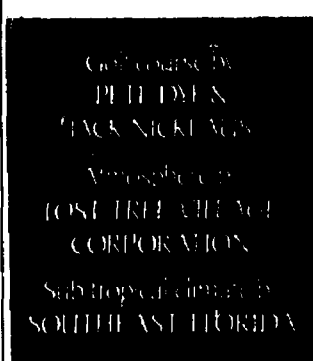 Golf course by
PETE DYE &
JACK NICKLAUS
Atmosphere by
LOST TREE VILLAGE
CORPORATION
Sub-tropical climate by
SOUTHEAST FLORIDA